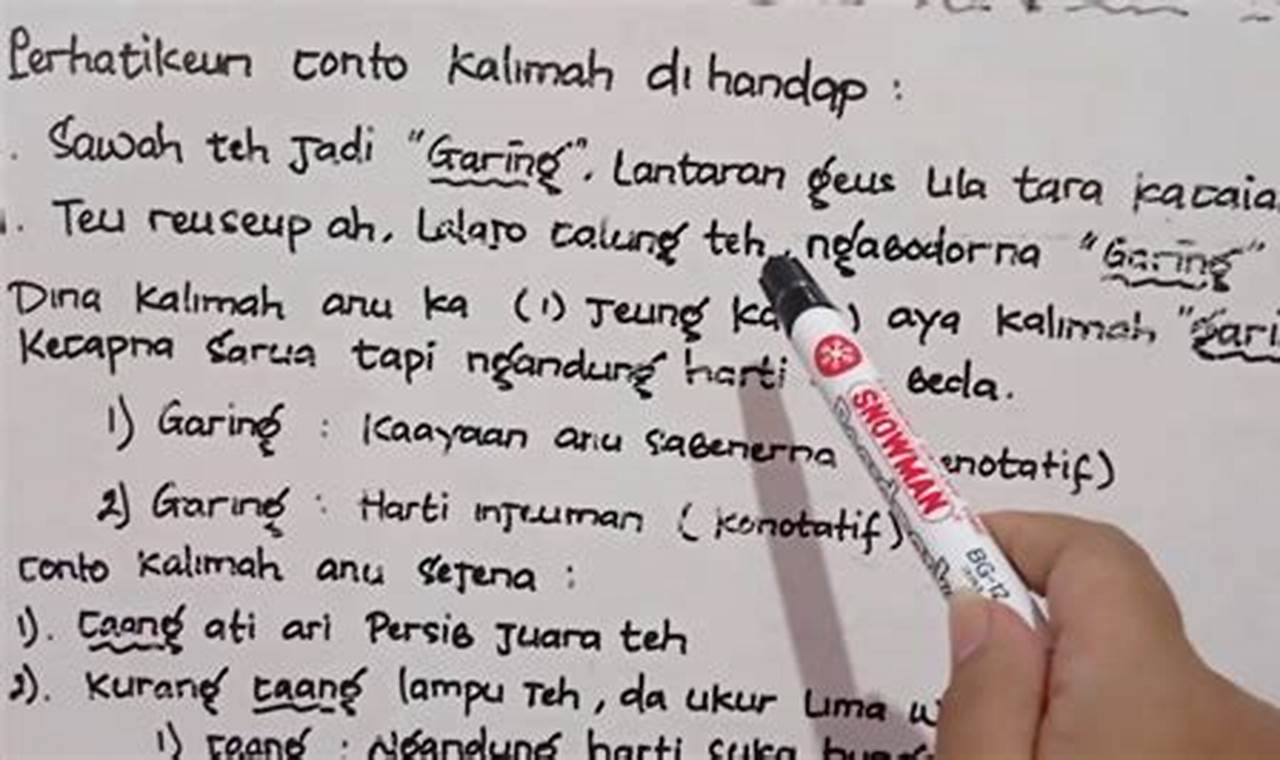 Perhatikeun conto kalimah di handap :
. Sawah teh Jadi "Garing". Lantaran geus lila tara kacaia
. Teu reuseup ah, Lalajo calung teh, ngabodorna "Garing"
Dina kalimah anu ka (1) Jeung ka ) aya kalimah "Gari
Kecapna sarua tapi ngandung harti beda.
1) Garing : Kaayaan anu sabenerna enotatif)
2) Garing : Harti injeuman (konotatif)
conto kalimah anu sejena :
1). Caang ati ari Persib Juara teh
2). Kurang caang lampu Teh, da ukur lima w
1) caang : Ngandung harti suka
SNOWMAN
BG-12